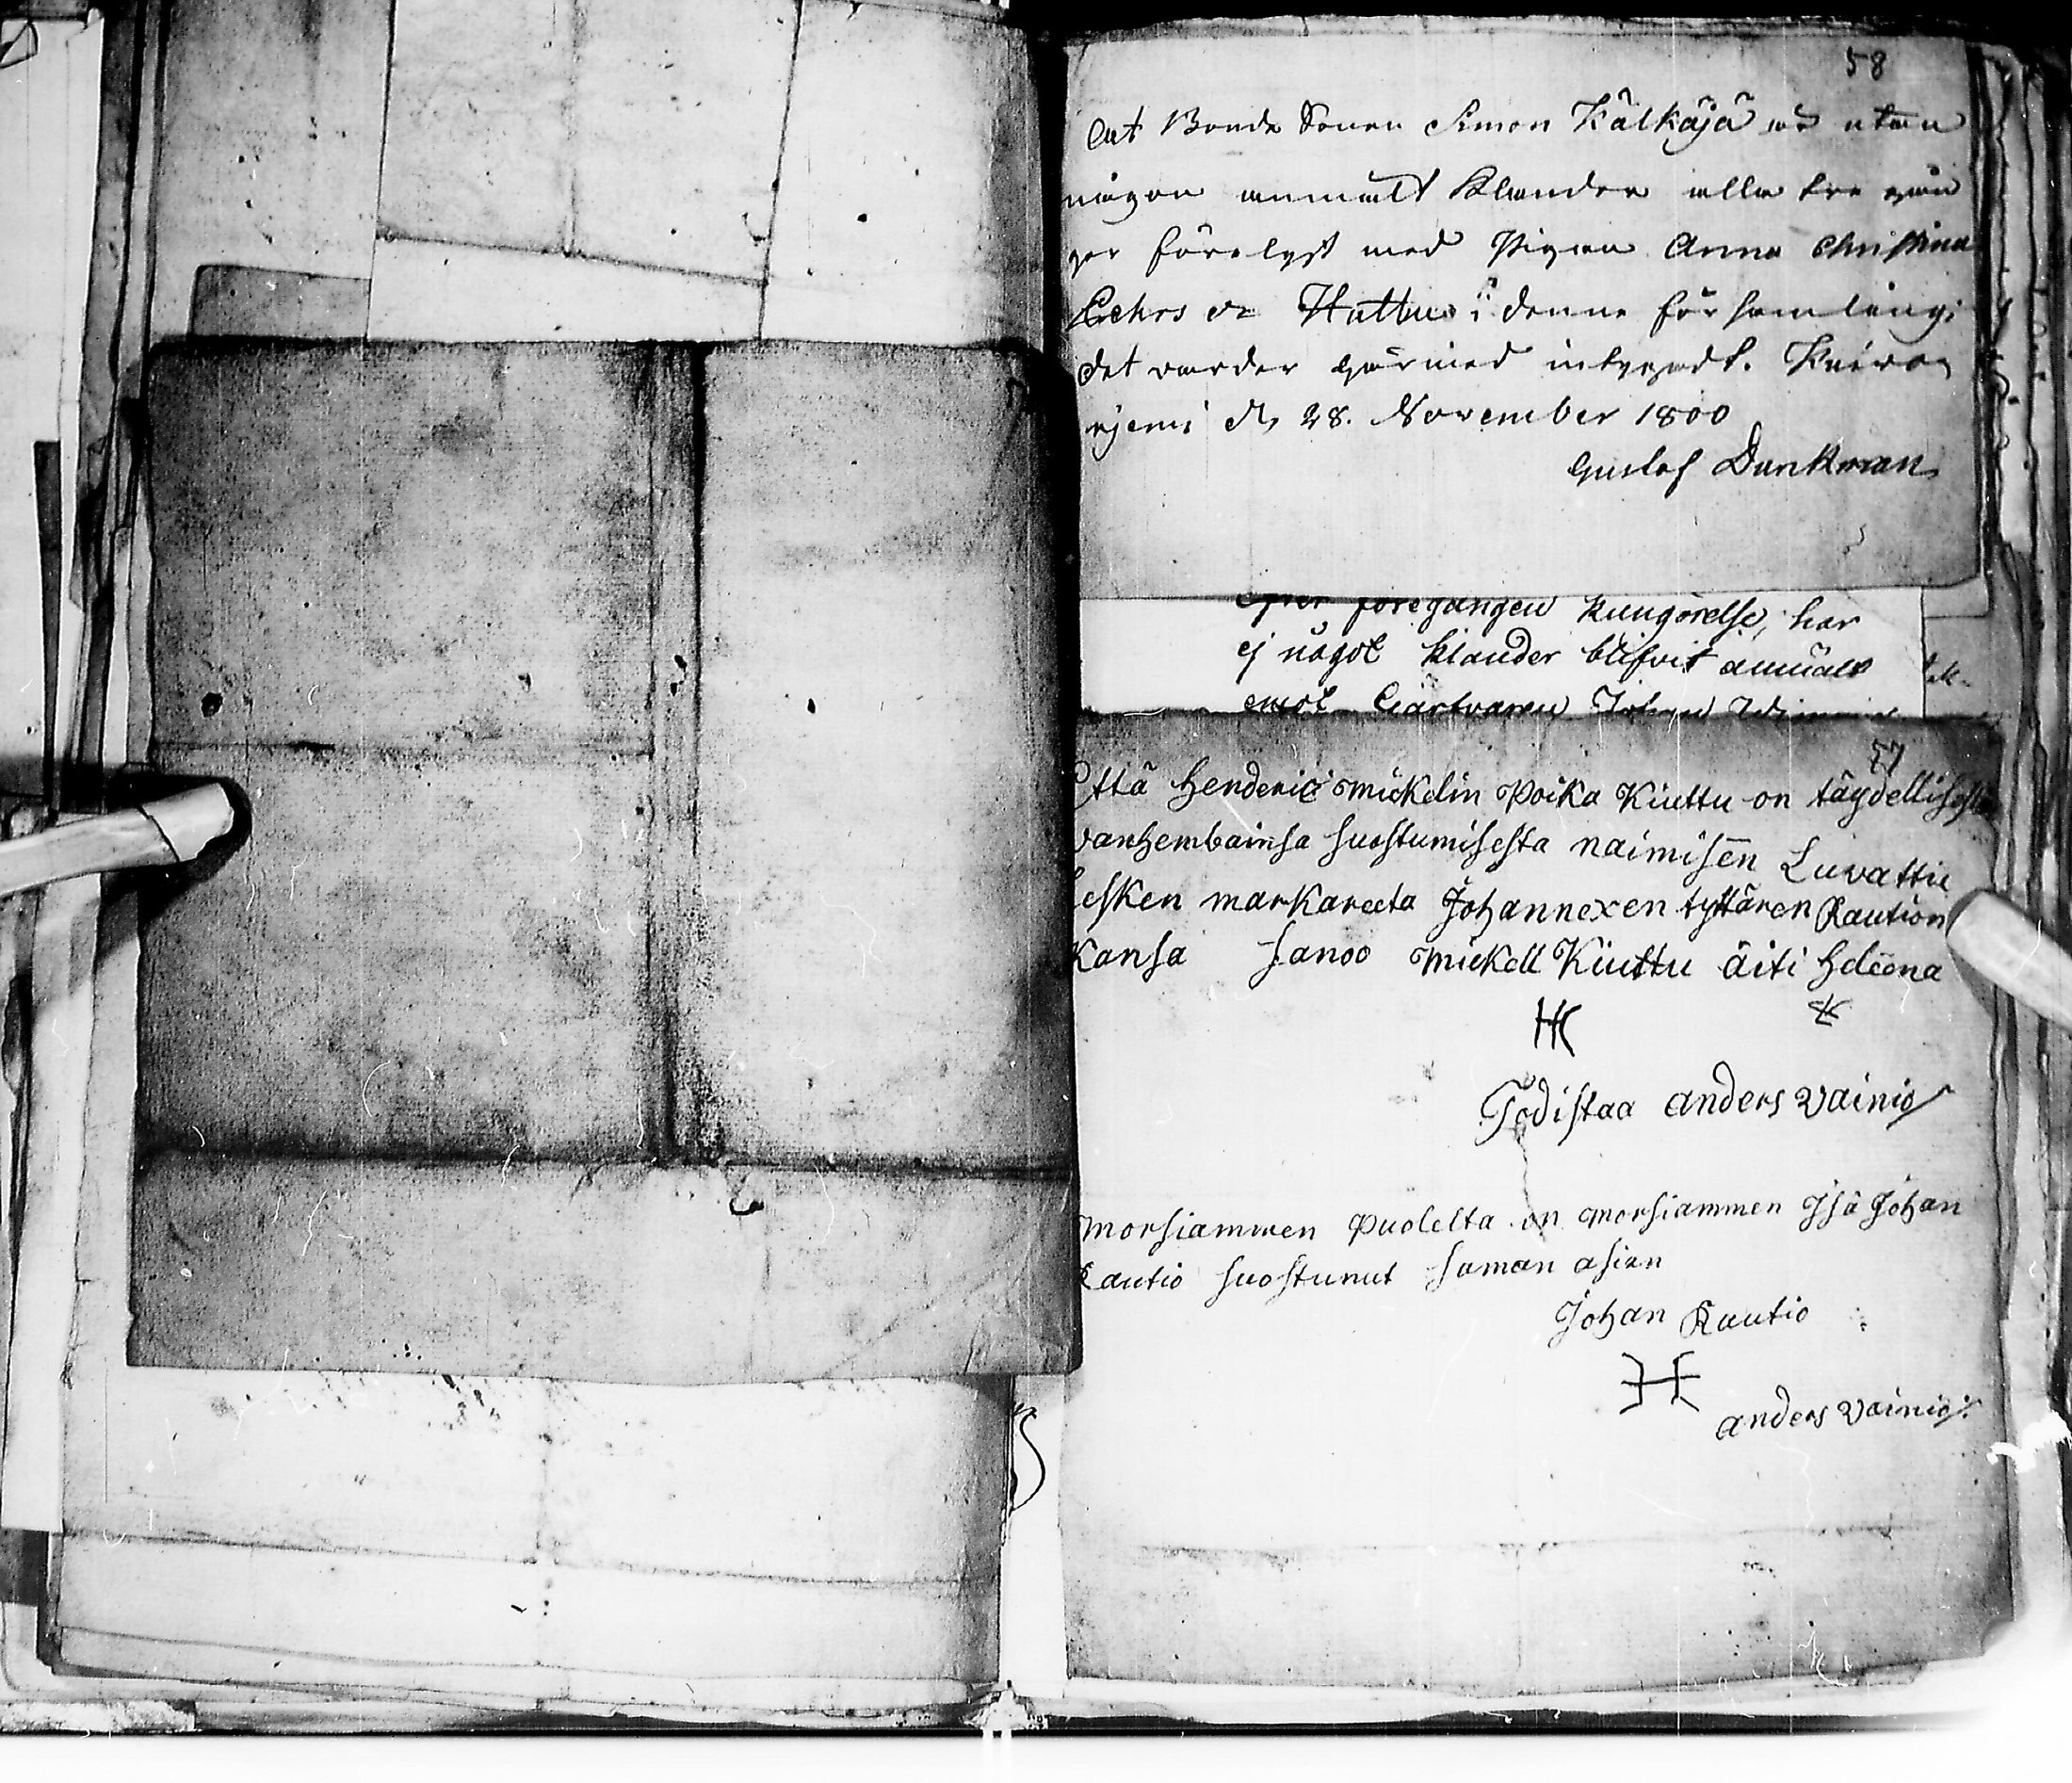 58
Aut Bonde Sonen Simon Kälkäjä är utan
någon anmält Klander alla tre gån
ger förelyst med Pigan Anna Christina
Lehrs dr Huttu i denne församling;
det varder härmed intygadt. Kuivas
njemi d. 28. November 1800
Gustaf Dunkman
efter föregången kungörelse, har
ej något klander blifvit anmäld
emot Gärtvaren Johan
57
Että Henderic Mickelin Poika Kiuttu on täydellisesti
vanhembainsa suostumisesta naimisen Luvattu
Lesken markareeta Johannexen tyttären Raution
Kansa sanoo Mickell Kiuttu äiti Heleena
HK
Todistaa anders Vainio
Morsiammen Puolelta on morsiammen Isä Johan
Rautio suostunut saman asian
Johan Rautio
anders Vainio